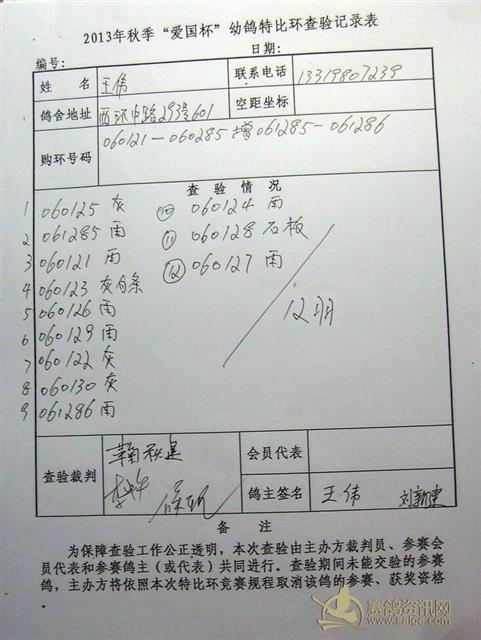 2013年秋季“爱国杯”幼鸽特比环查验记录表
编号: 日期:
姓名 王伟 联系电话 13319807239
鸽舍地址 西环中路293号601 空距坐标
购环号码 060121—060285 增061285—061286
查验情况
1 060125 灰 ⑩ 060124 雨
2 061285 雨 ⑪ 060128 石板
3 060121 雨 ⑫ 060127 雨
4 060123 灰白条
5 060126 雨
6 060129 雨
7 060122 灰
8 060130 灰
9 061286 雨
羽
查验裁判 会员代表
鸽主签名 王伟 刘新建
备注
为保障查验工作公正透明，本次查验由主办方裁判员、参赛会
员代表和参赛鸽主（或代表）共同进行。查验期间未能交验的参赛
鸽，主办方将依照本次特比环竞赛规程取消该鸽的参赛、获奖资格
赛鸽资讯网
www.saigc.com